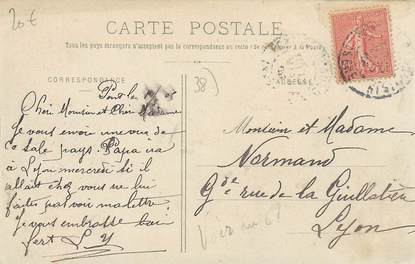 20€
CARTE POSTALE
Tous les pays étrangers n'acceptent pas la correspondance au recto
CORRESPONDANCE
38
Pont le
Chèr Monsieur et Chère Madame
Je vous envoi une vue de
ce sale pays. Papa ira
à Lyon mercredi si il
allait chez vous ne lui
faites pas voir ma lettre.
Je vous embrasse bien
fort
Monsieur et Madame
Normand
Gde rue de la Guillotière
Lyon